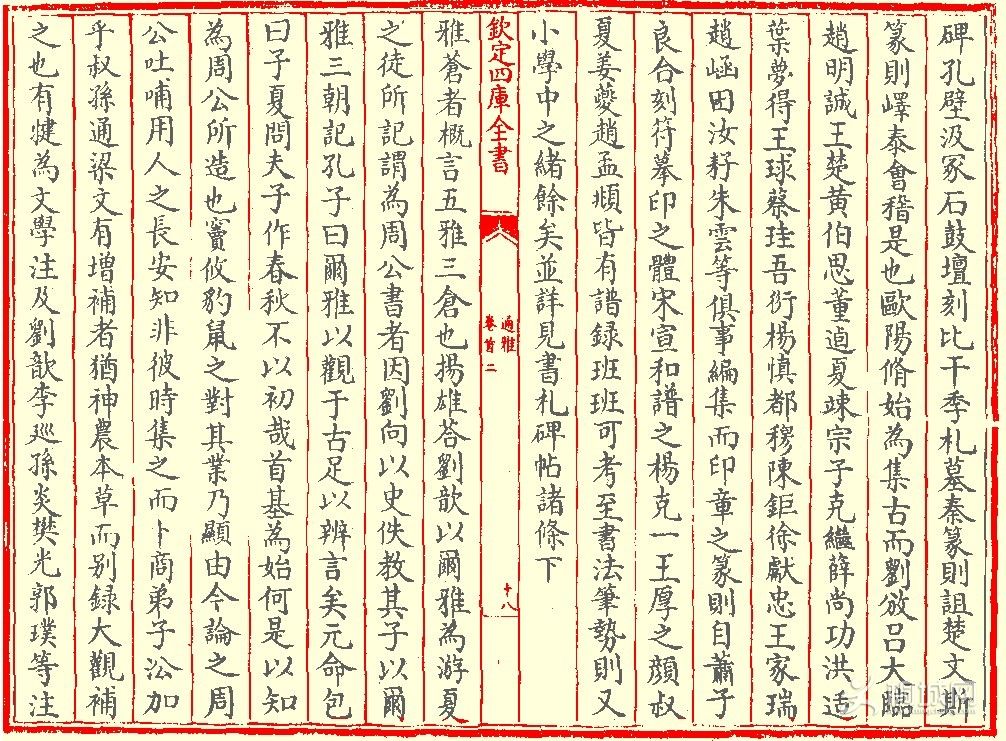 碑孔壁汲冢石鼓壇刻比干季札墓秦篆則詛楚文斯
篆則嶧泰會稽是也歐陽脩始為集古而劉敞呂大臨
趙明誠王楚黃伯思董逌夏竦宗子克繼薛尚功洪适
葉夢得王球蔡珪吾衍楊慎都穆陳鉅徐獻忠王家瑞
趙崡田汝耔朱雲等俱事編集而印章之篆則自蕭子
良台刻符摹印之體宋宣和譜之楊克一王厚之顔叔
夏姜夔趙孟頫皆有譜録班班可考至書法筆勢則又
小學中之緒餘矣並詳見書札碑帖諸條下
欽定四庫全書
通雅
卷首二
十八
雅蒼者概言五雅三倉也揚雄荅劉歆以爾雅為游夏
之徒所記謂為周公書者因劉向以史佚教其子以爾
雅三朝記孔子曰爾雅以觀于古足以辨言矣元命包
曰子夏問夫子作春秋不以初哉首基為始何是以知
為周公所造也竇攸豹鼠之對其業乃顯由今論之周
公吐哺用人之長安知非彼時集之而卜商弟子沿加
乎叔孫通梁文有增補者猶神農本草而别録大觀補
之也有犍為文學注及劉歆李廵孫炎樊光郭璞等注